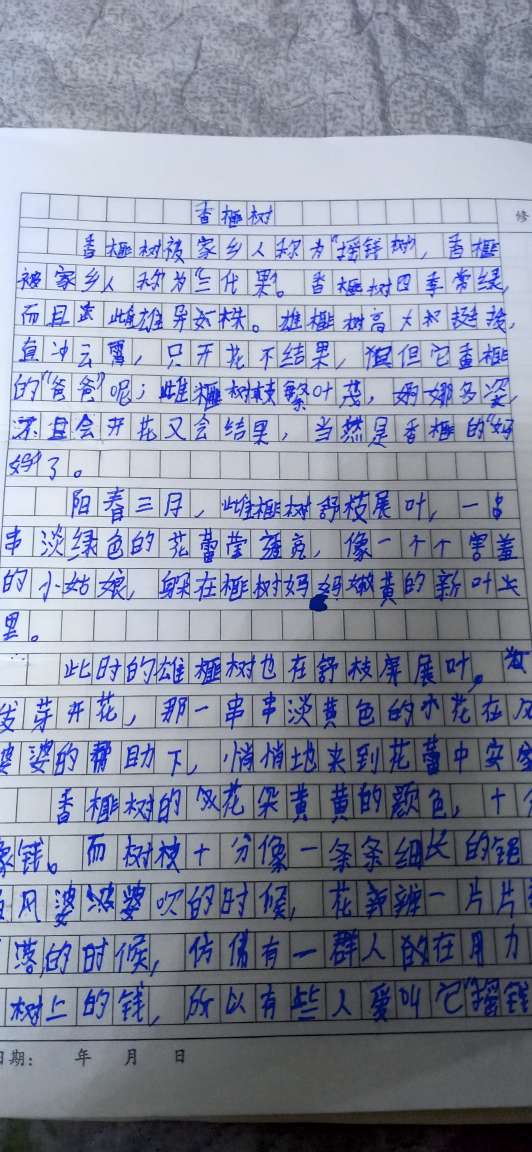 香榧树
修
香榧树被家乡人称为"摇钱树",香榧
被家乡人称为"三代果"。香榧树四季常绿,
而且雌雄异株。雄榧树高大和挺拔,
直冲云霄,只开花不结果,但它香榧
的"爸爸"呢;雌榧树枝繁叶茂,婀娜多姿,
不且会开花又会结果,当然是香榧的"妈
妈"了。
阳春三月,雌榧树舒枝展叶,一串
串淡绿色的花蕾莹亮,像一个个害羞
的小姑娘,躲在榧树妈妈嫩黄的新叶
里。
此时的雄榧树也在舒枝展叶,
发芽开花,那一串串淡黄色的小花在风
婆婆的帮助下,悄悄地来到花蕾中安家
香榧树的花朵黄黄的颜色,十分
像钱。而树枝十分像一条条细长的铜
风婆婆吹的时候,花瓣一片片
落的时候,仿佛有一群人在用力
树上的钱,所以有些人爱叫它"摇钱
日期: 年 月 日